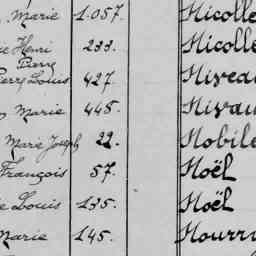 Marie 1.057. Nicolle
Henri 233. Nicolle
Parry
Pierre Louis 427. Niveau
Marie 445. Nivau
Marie Joseph 22. Nobile
François 57. Noël
Louis 135. Noël
Marie 145. Nourry